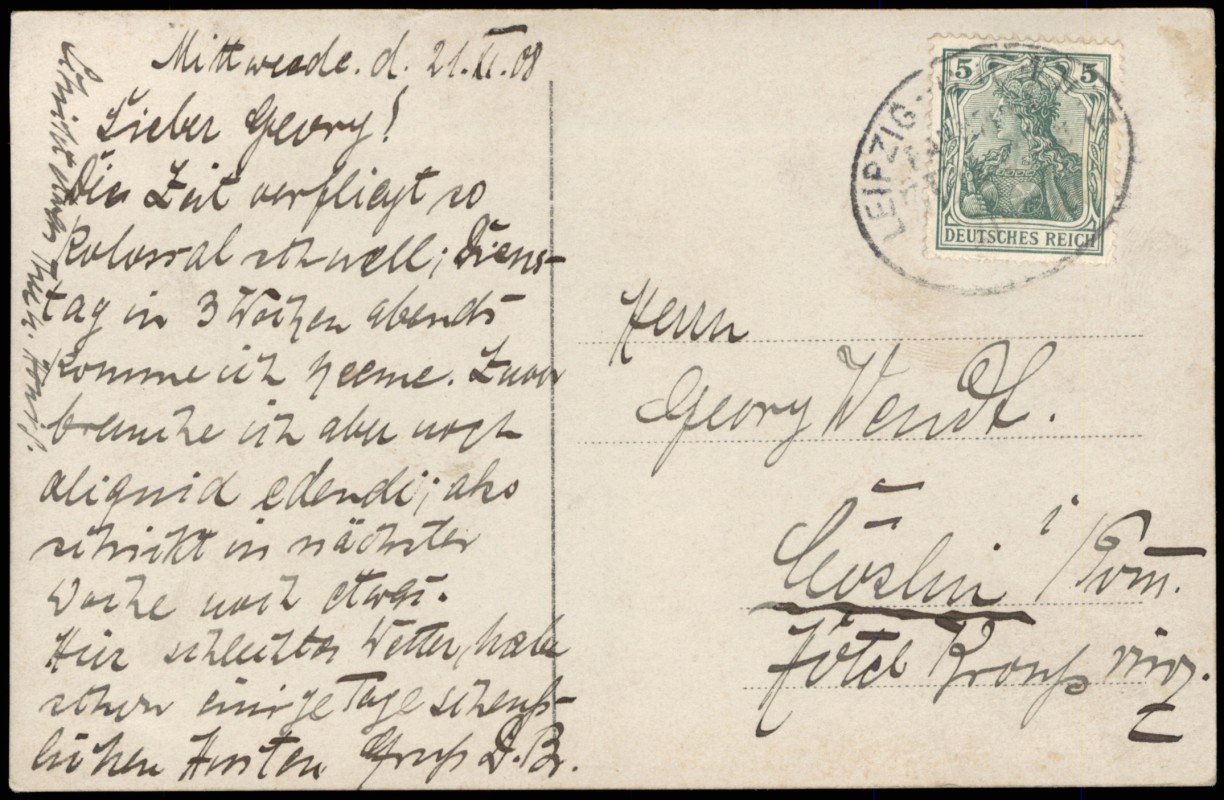 Mittweida. d. 21. XI. 08
Lieber Georg!
Die Zeit verfliegt so
kolossal schnell; Diens-
tag in 3 Wochen abends
komme ich heeme. Zuvor
brauche ich aber noch
aliquid edendi; also
schickt in nächster
Woche noch etwas.
Hier schlechtes Wetter, habe
schon einige Tage scheuß-
lichen Husten Gruß D. Br.
Schickt
5 5
DEUTSCHES REICH
LEIPZIG
Herrn
Georg Wendt.
Cöslin i/Pom.
Hôtel Kronprinz.